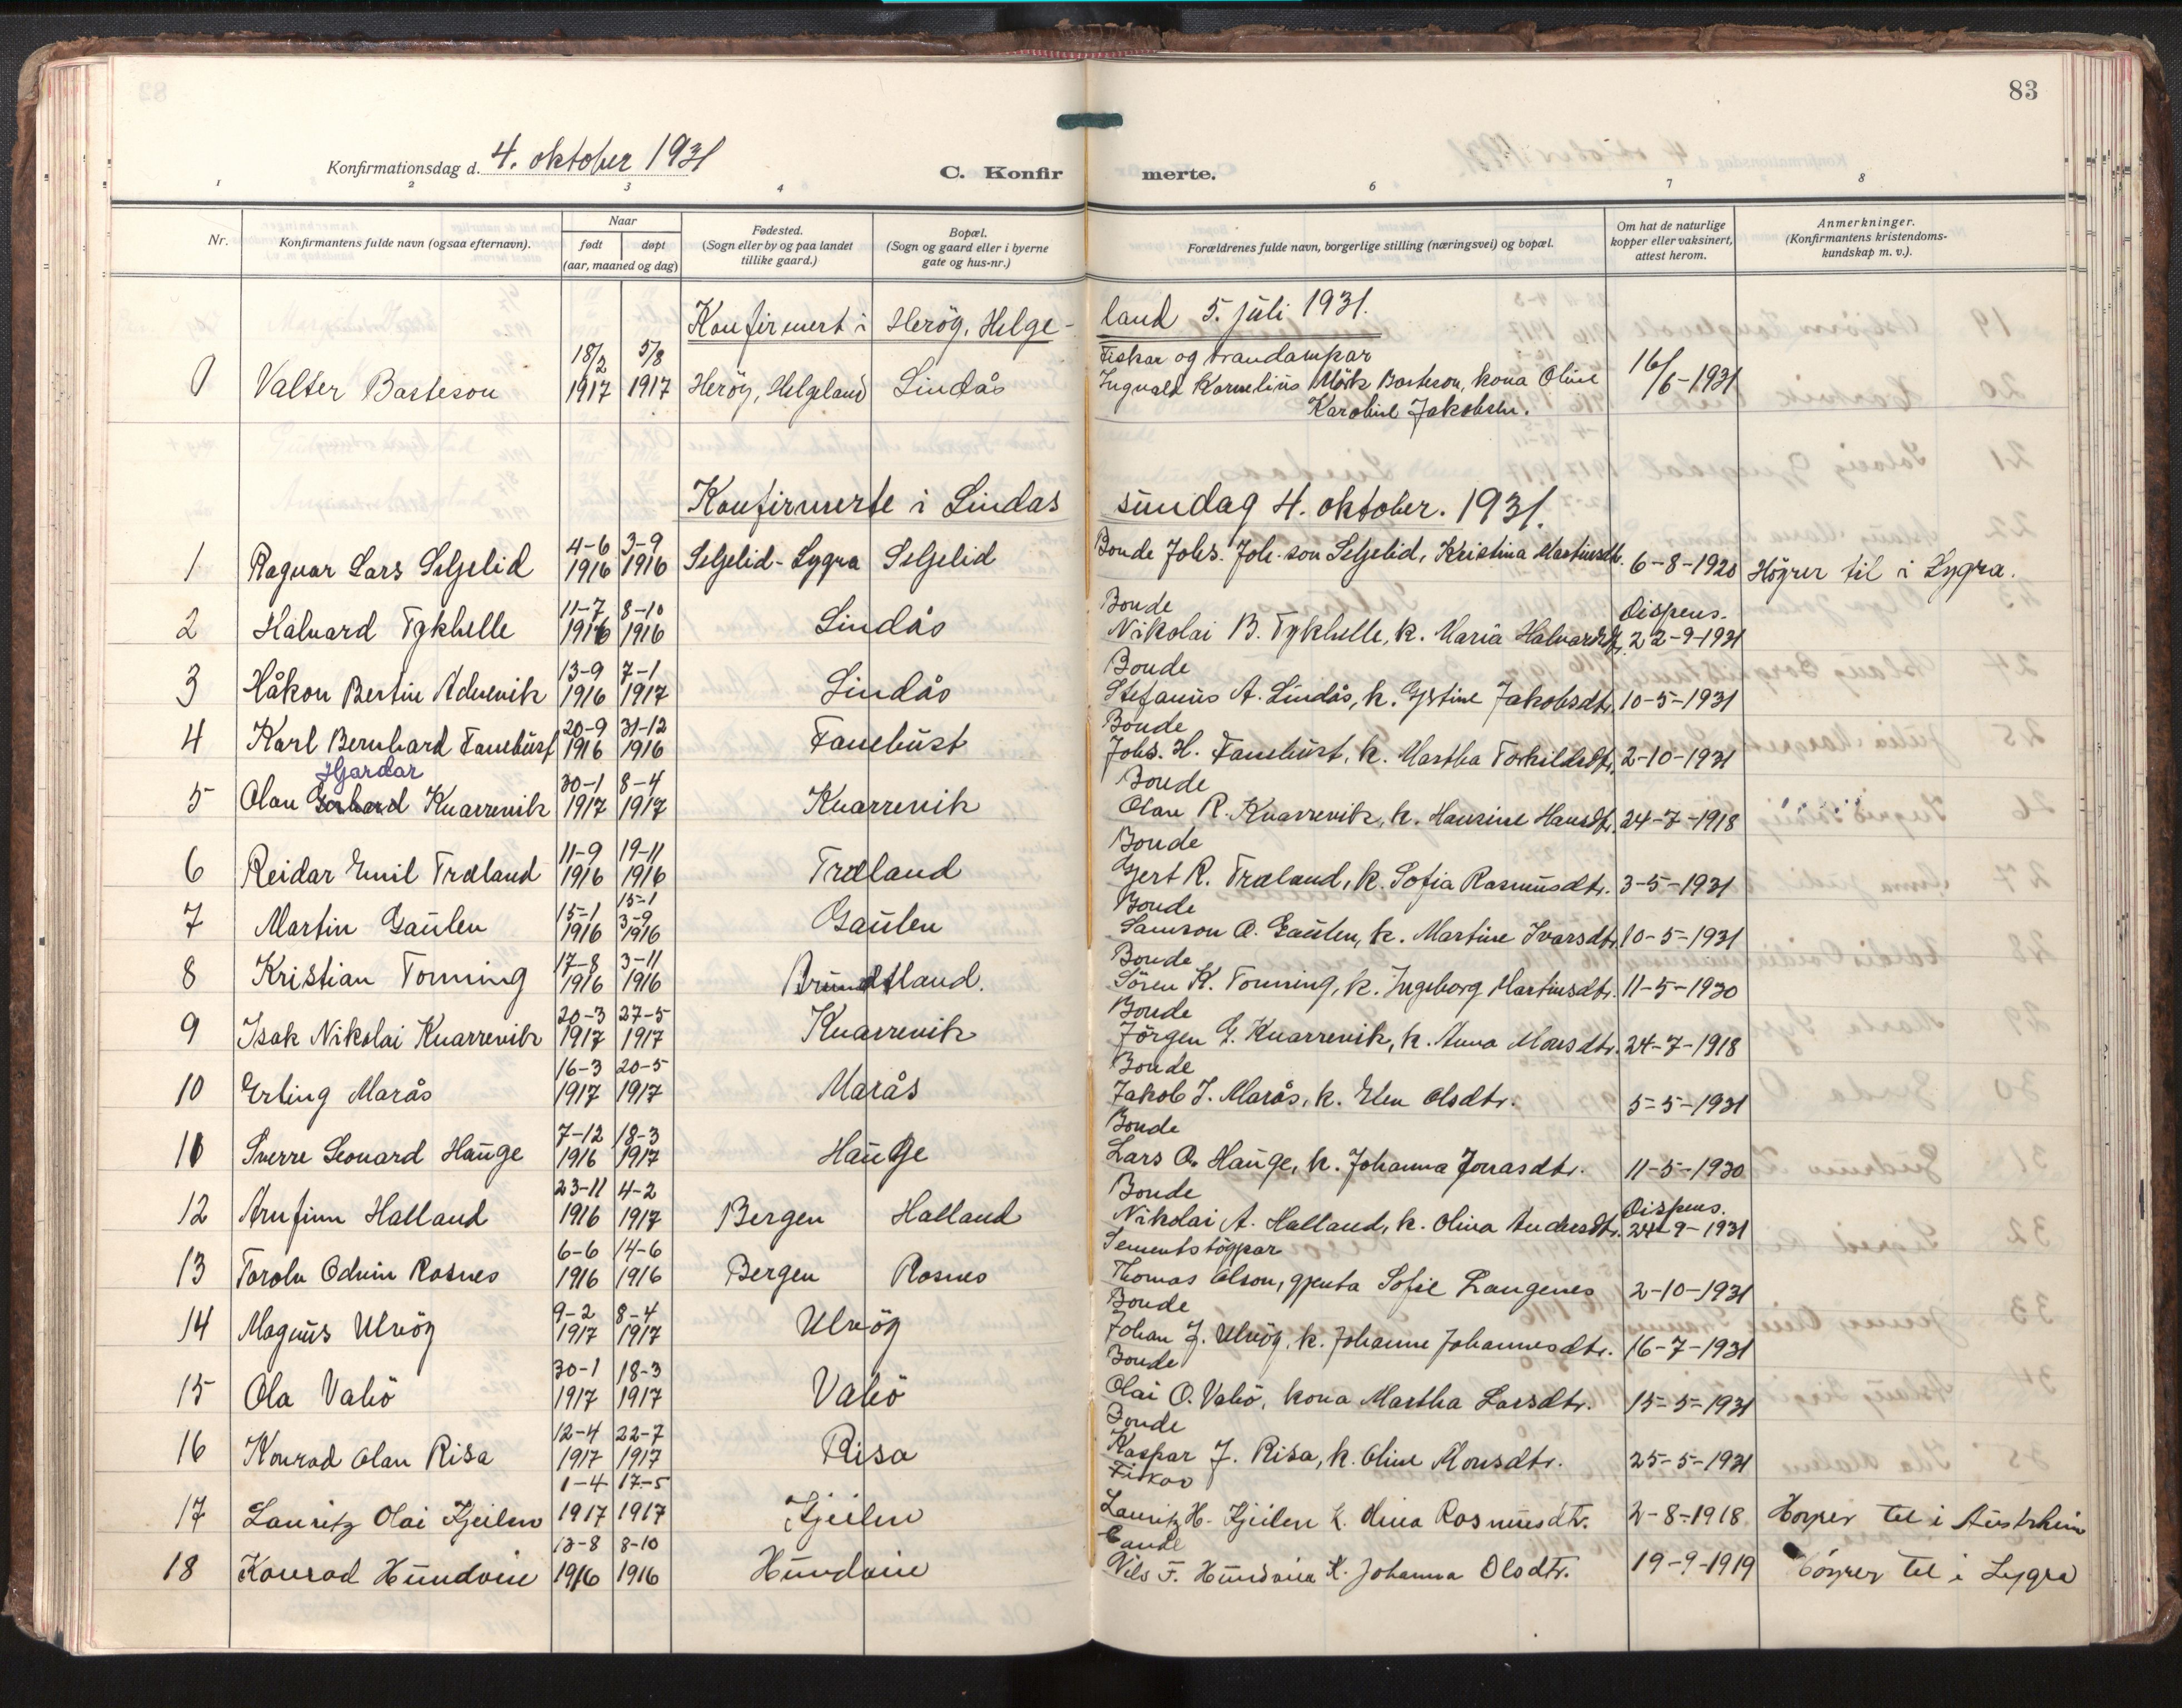 83
Konfirmationsdag d. 4. oktober 1931
C. Konfirmerte.
1 2 3 4 6 7 8
Nr.
Konfirmantens fulde navn (ogsaa efternavn).
Naar
født døpt
(aar, maaned og dag)
Fødested.
(Sogn eller by og paa landet
tillike gaard.)
Bopæl.
(Sogn og gaard eller i byerne
gate og hus-nr.)
Forældrenes fulde navn, borgerlige stilling (næringsvei) og bopæl.
Om hat de naturlige
kopper eller vaksinert,
attest herom.
Anmerkninger.
(Konfirmantens kristendoms-
kundskap m. v.).
Konfirmert i Herøy, Helgeland 5. juli 1931.
18/2 5/8 Fiskar og brandampar
Valter Basteson 1917 1917 Herøy, Helgeland Lindås Ingvald Kornelius Mörk Basteson, kona Oline 16/6-1931
Karoline Jakobsen.
Konfirmerte i Lindas sundag 4. oktober. 1931.
4-6 3-9
1 Ragnar Lars Seljelid 1916 1916 Seljelid-Lygra Seljelid Bonde Johs. Joh-son Seljelid, Kristina Martinsdtr. 6-8-1920 Höyrer til i Lygra.
11-7 8-10 Bonde Dispens.
2 Halvard Tykhelle 1916 1916 Lindås Nikolai B. Tykhelle, k. Maria Halvardsdtr. 22-9-1931
13-9 7-1 Bonde
3 Håkon Bertin Adnevik 1916 1917 Lindås Stefanus A. Lindås, k. Gjstine Jakobsdtr. 10-5-1931
20-9 31-12 Bonde
4 Karl Bernhard Fanebust 1916 1916 Fanebust Johs. H. Fanebust, k. Martha Torkildsdtr. 2-10-1931
Hjardar 30-1 8-4 Bonde
5 Olav Gerhard Knarrevik 1917 1917 Knarrevik Olav R. Knarrevik, k. Hansine Hansdtr. 24-7-1918
11-9 19-11 Bonde
6 Reidar Emil Træland 1916 1916 Træland Gjert R. Træland, k. Sofia Rasmusdtr. 3-5-1931
15-1 15-1 Bonde
7 Martin Gaulen 1916 3-9 1916 Gaulen Samson O. Gaulen, k. Martine Ivarsdtr. 10-5-1931
17-8 3-11 Bonde
8 Kristian Tonning 1916 1916 Brundtland. Sören K. Tonning, k. Ingeborg Martinsdtr. 11-5-1930
20-3 27-5 Bonde
9 Isak Nikolai Knarrevik 1917 1917 Knarrevik Jörgen G. Knarrevik, k. Anna Monsdtr. 24-7-1918
16-3 20-5 Bonde
10 Erling Marås 1917 1917 Marås Jakob J. Marås, k. Elen Olsdtr. 5-5-1931
7-12 18-3 Bonde
11 Sverre Leonard Hauge 1916 1917 Hauge Lars O. Hauge, k. Johanna Jonasdtr. 11-5-1930
23-11 4-2 Bonde Dispens.
12 Arnfinn Halland 1916 1917 Bergen Halland Nikolai A. Halland, k. Olina Andresdtr. 24-9-1931
6-6 14-6 Sementstöypar
13 Torolv Odvin Rosnes 1916 1916 Bergen Rosnes Thomas Olson, gjenta Sofie Langenes 2-10-1931
9-2 8-4 Bonde
14 Magnus Ulvöy 1917 1917 Ulvöy Johan J. Ulvöy, k. Johanne Johannesdtr. 16-7-1931
30-1 18-3 Bonde
15 Ola Vabö 1917 1917 Vabö Olai O. Vabö, kona Martha Larsdtr. 15-5-1931
12-4 22-7 Bonde
16 Konrad Olav Risa 1917 1917 Risa Kaspar J. Risa, k. Oline Monsdtr. 25-5-1931
1-4 17-5 Fiskar
17 Lauritz Olai Kjeilen 1917 1917 Kjeilen Lauritz H. Kjeilen k. Olina Rasmusdtr. 2-8-1918 Hoyrer til i Austrheim
13-8 8-10
18 Konrad Hundvin 1916 1916 Hundvin Nils F. Hundvin k. Johanna Olsdtr. 19-9-1919 Höyrer til i Lygra